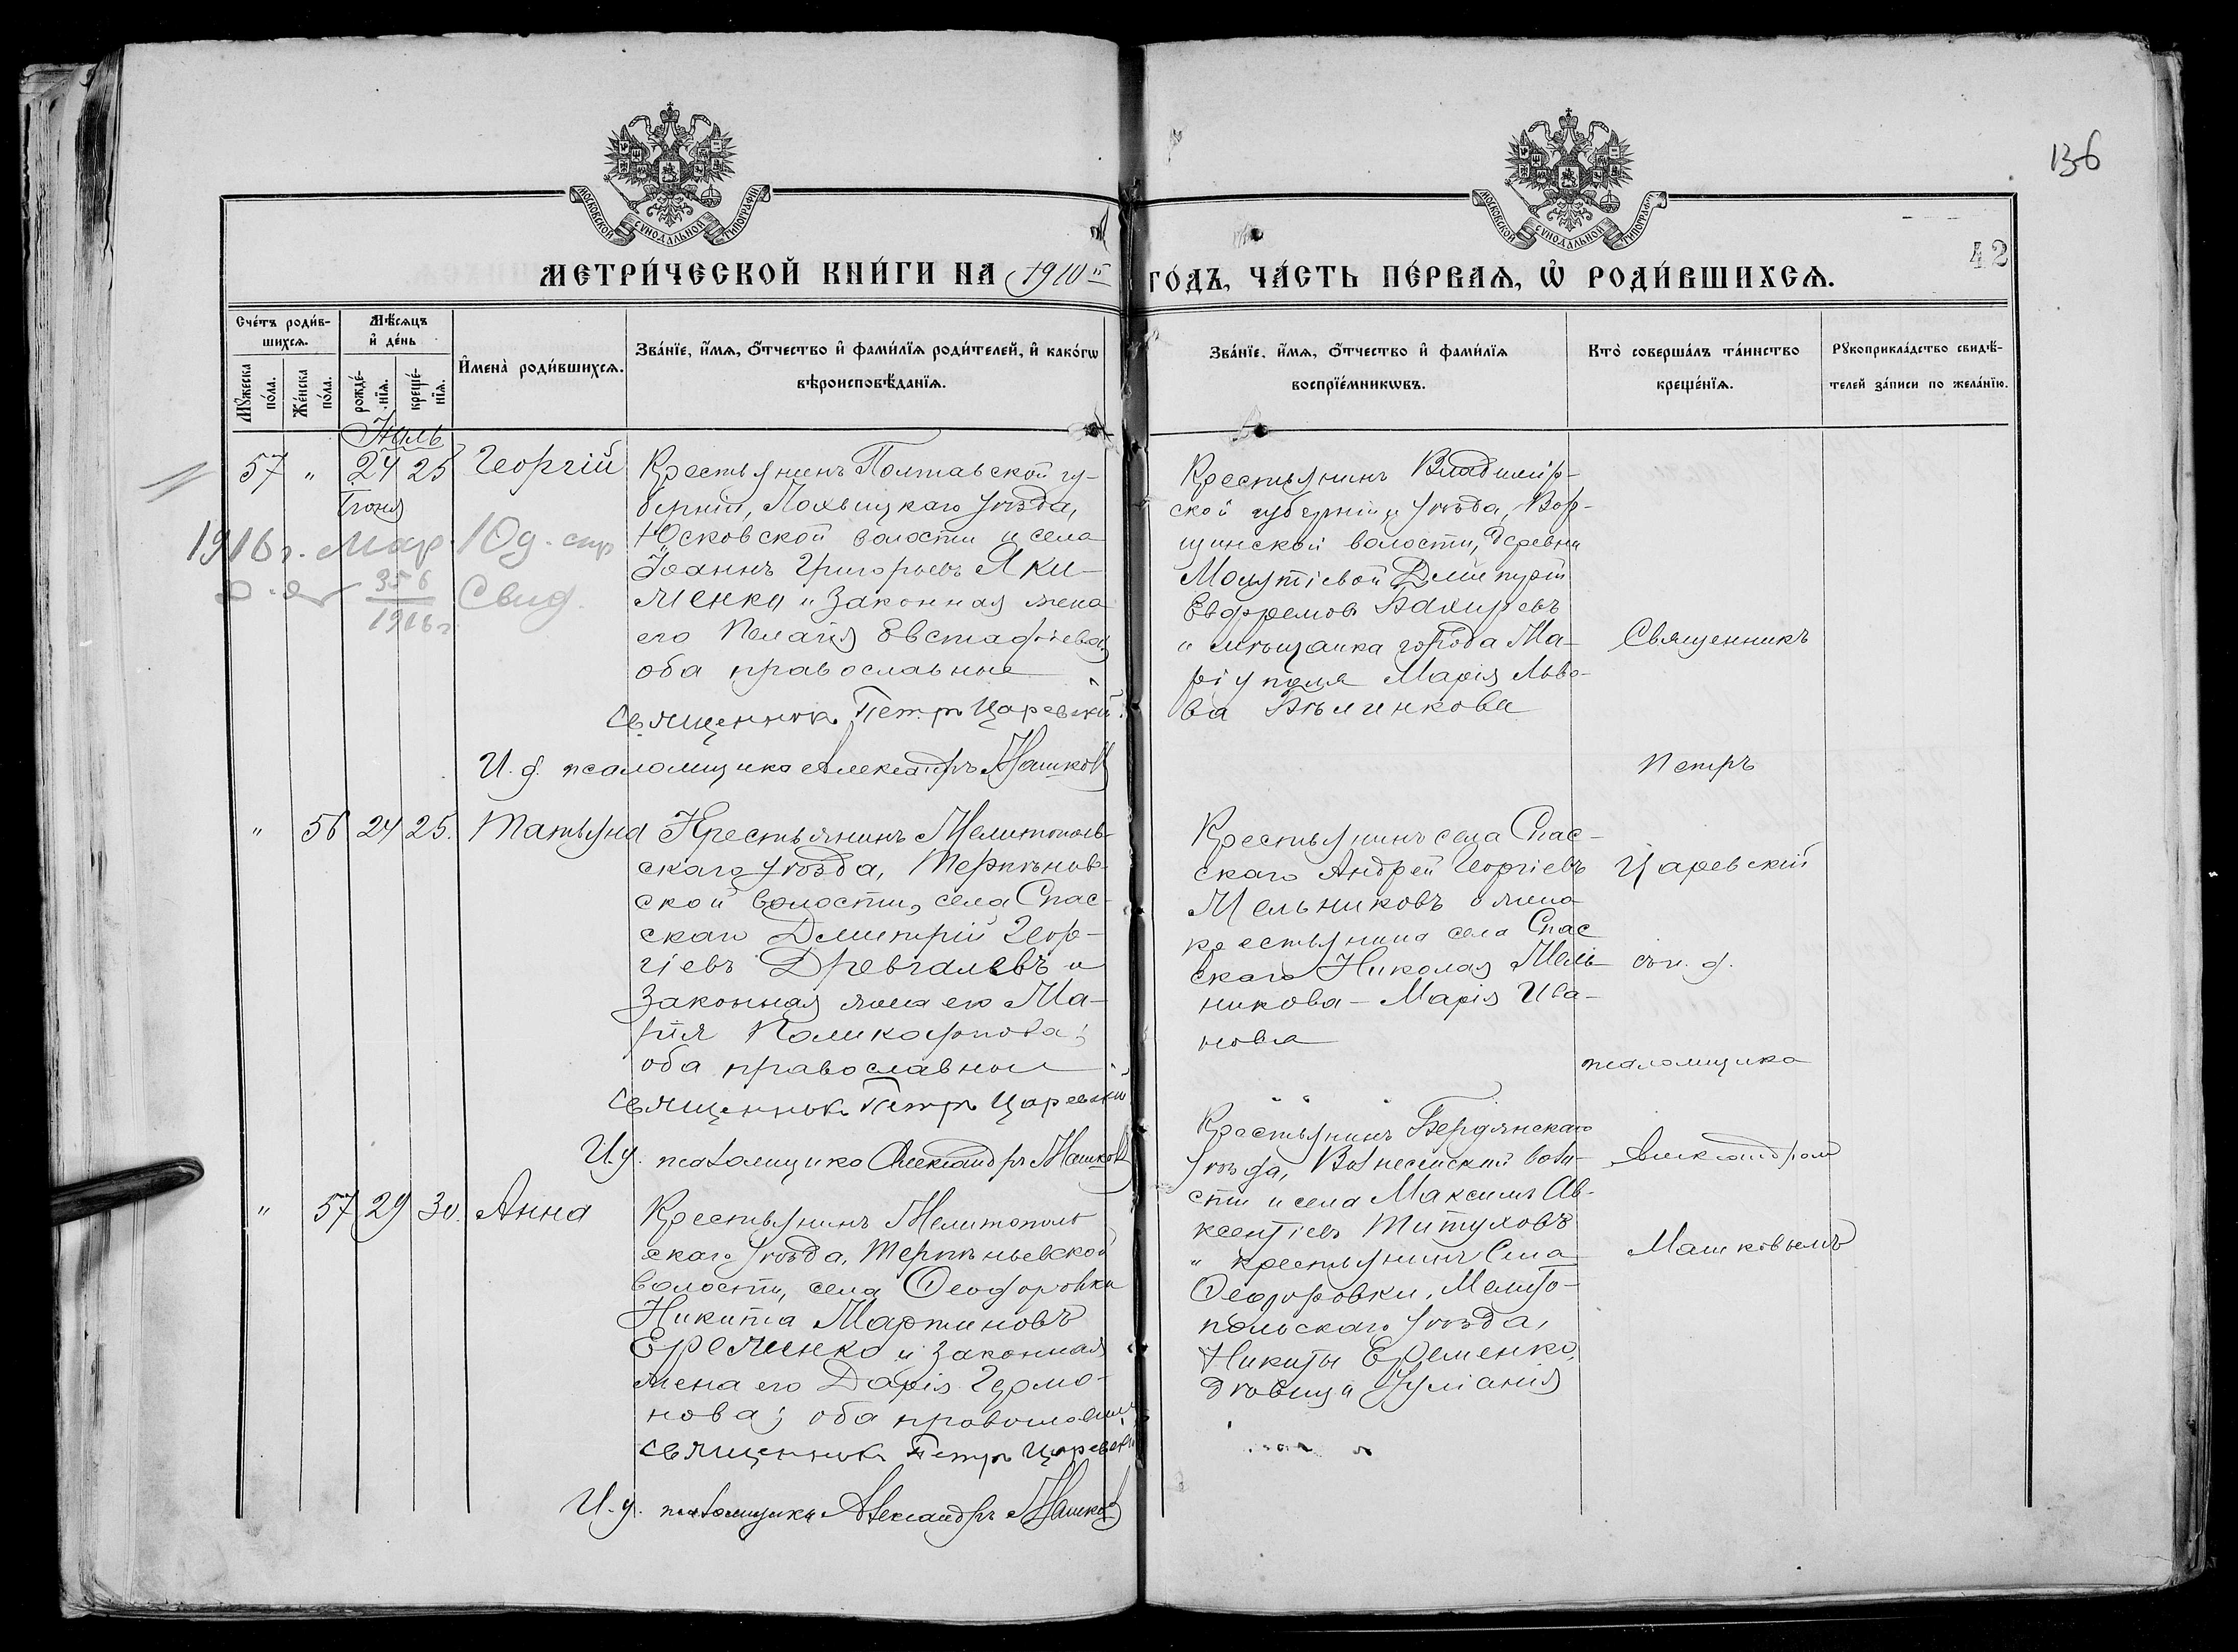 136
42
МОСКОВСКОЙ СУНОДАЛЬНОЙ ТИПОГРАФІИ
МОСКОВСКОЙ СУНОДАЛЬНОЙ ТИПОГРАФІИ
МЕТРИ́ЧЕСКОЙ КНИ́ГИ НА 1910й ГО́ДЪ, ЧА́СТЬ ПЕ́РВАѦ, Ѡ҆ РОДИ́ВШИХСѦ.
Сче́тъ роди́в-
шихсѧ.
Мꙋ́жеска
по́ла.
Же́нска
по́ла.
Мѣ́сѧцъ
и҆ де́нь
рожде́-
нїѧ.
креще́-
нїѧ.
И҆мена̀ роди́вшихсѧ.
Зва́нїе, и҆́мѧ, ѻ҆́тчество и҆ фами́лїѧ роди́телей, и҆ како́гѡ
вѣроисповѣ́данїѧ.
Зва́нїе, и҆́мѧ, ѻ҆́тчество и҆ фами́лїѧ
воспрїе́мникѡвъ.
Кто̀ соверша́лъ та́инство
креще́нїѧ.
Рꙋкоприкла́дство свидѣ́-
телей за́писи по жела́нїю.
57 " 24 25 Георгій
Іюня
1916 г. Мар.
356
1916 г.
Свид.
Крестьянинъ Полтавской гу-
берніи, Лохвицкаго уѣзда,
Юсковской волости и села
Іоаннъ Григорьевъ Яки-
менко и законная жена
его Пелагія Евстафіева
оба православные
Священникъ Петръ Царевскій.
И. д. псаломщика Александръ Машковъ
Крестьянинъ Владимір-
ской губерніи и уѣзда, Вор-
щинской волости, деревни
Димитрій
Евфремовъ Бахиревъ
и мѣщанка города Ма-
ріуполя Марія Льво-
ва Бѣлинкова
Священникъ
Петръ
Царевскій
съ и. д.
псаломщика
Александромъ
Машковымъ
" 56 24 25. Татьяна
Крестьянинъ Мелитополь-
скаго уѣзда, Терпѣньев-
ской волости, села Спас-
скаго Димитрій Геор-
гіевъ Древгалевъ и
законная жена его Ма-
рія Поликарпова;
оба православные
Священникъ Петръ Царевскій
И. д. псаломщика Александръ Машковъ
Крестьянинъ села Спас-
скаго Андрей Георгіевъ
Мельниковъ и жена
крестьянина села Спас
скаго Николая Мель-
никова - Марія Ива-
нова
" 57 29 30. Анна
Крестьянинъ Мелитополь
скаго уѣзда, Терпѣньевской
волости, села Ѳеодоровки
Никита Мартиновъ
Еременко и законная
жена его Дарія
нова; оба православные
Священникъ Петръ Царевскій
И. д. псаломщика Александръ Машковъ
Крестьянинъ Бердянскаго
уѣзда, Вознесенской воло-
сти и села Максимъ Ав-
ксентіевъ Титуховъ
и крестьянина села
Ѳеодоровки, Мелито-
польскаго уѣзда,
Никиты Еременко,
дѣвица Іуліанія